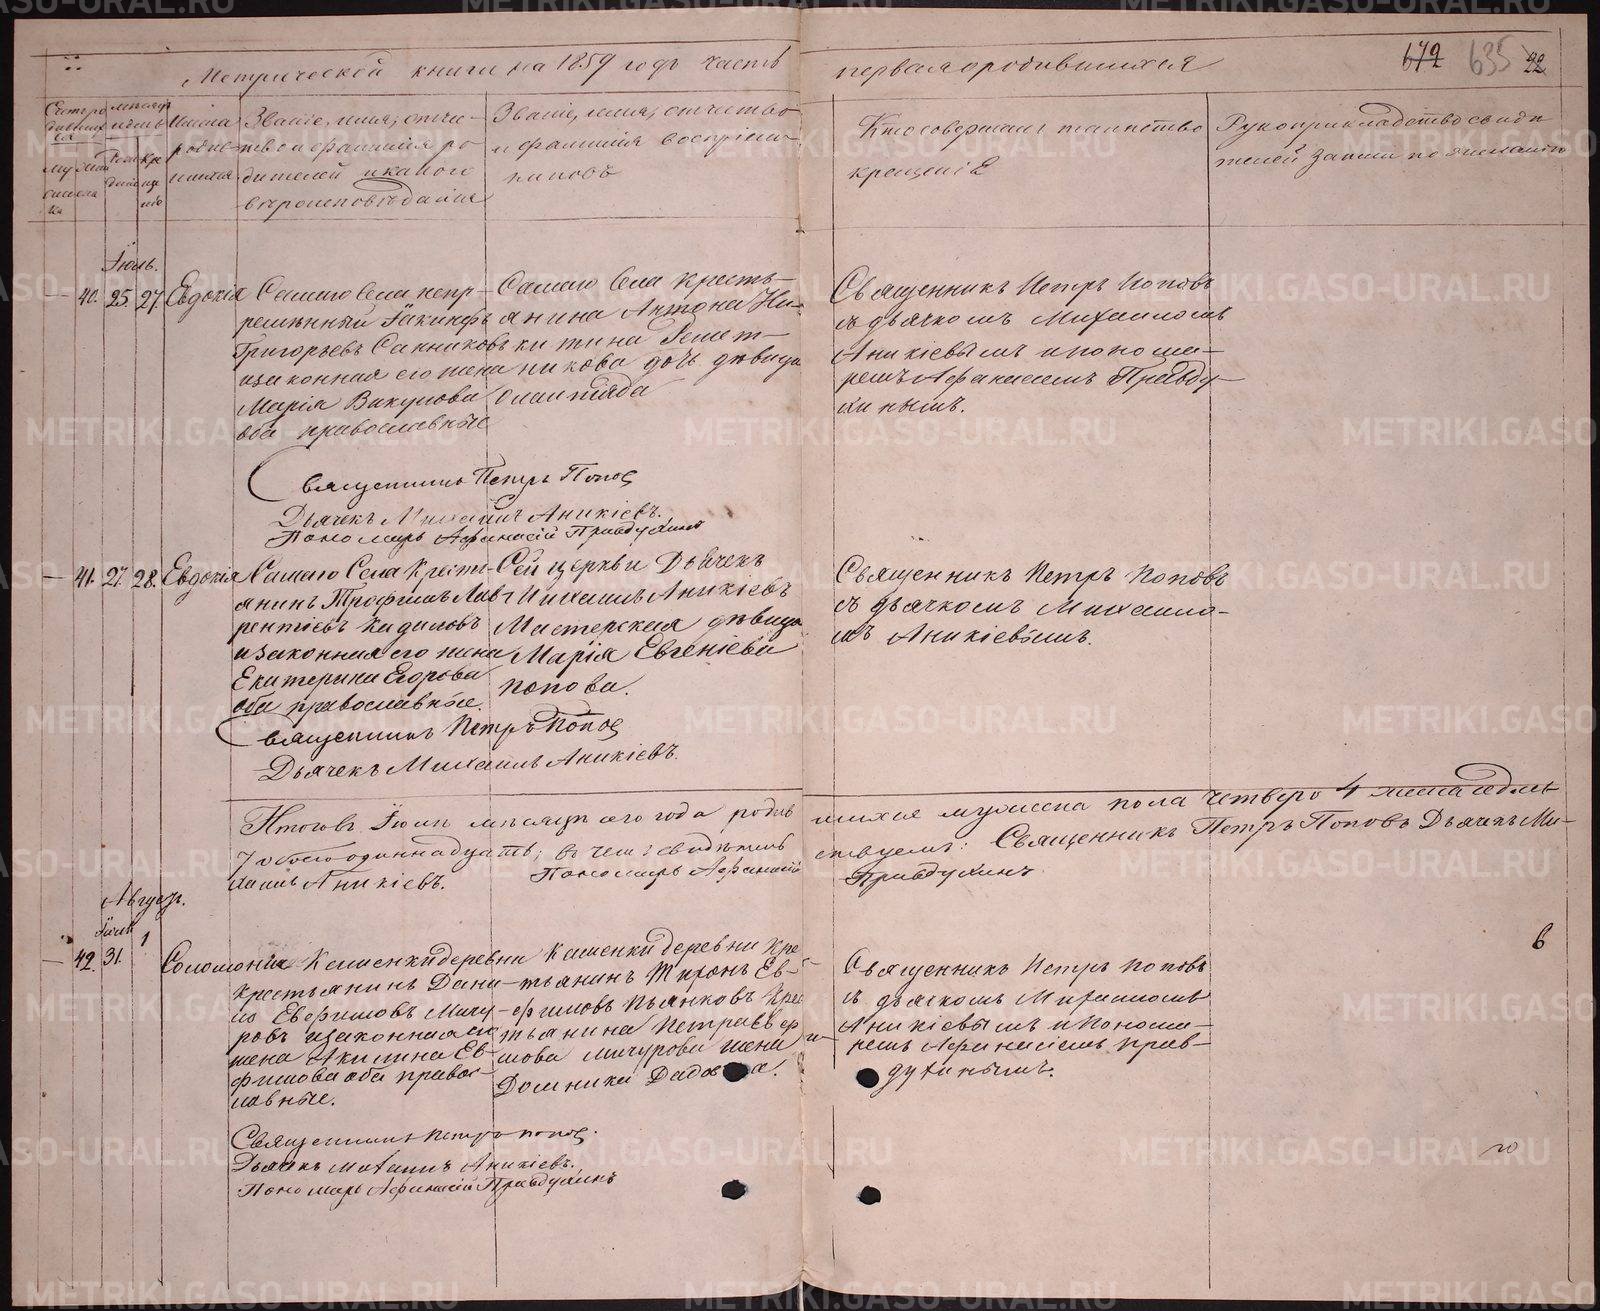 Метрической книги на 1859 годъ часть первая о родившихся
672 635 22
Счетъ родившихся
мѣсяцъ и день
Имена родившихся
Званіе, имя, отчество и фамилія родителей и какого вѣроисповѣданія
Званіе, имя, отчество и фамилія воспріемниковъ
Кто совершалъ таинство крещенія
Рукоприкладство свидѣтелей записи по желанію
Іюль.
40. 25. 27. Евдокія
Самаго Села непр-
ремѣнный Іакинфъ
Григорьевъ Санниковъ
и законная его жена
Марія Вакулова
оба православные
Самаго Села кресть-
янина Антона Ни-
китина Решет-
никова дочь дѣвица
Олимпіада
Священникъ Петръ Поповъ
съ дьячкомъ Михаиломъ
Аникіевымъ и понома-
ремъ Афанасіемъ Правду-
хинымъ.
Священникъ Петръ Попов
Дьячекъ Михаилъ Аникіевъ.
Пономарь Афанасій Правдухинъ
41. 27. 28. Евдокія
Самаго Села Крести-
янинъ Трофимъ Лав-
рентіевъ Кадиловъ
и законная его жена
Екатерина Егорова
оба православные.
Сей церкви Дьячекъ
Михаилъ Аникіевъ
Мастерская дѣвица
Марія Евгеніева
Попова.
Священникъ Петръ Поповъ
съ дьячкомъ Михаило-
мъ Аникіевымъ.
Священникъ Петръ Попов
Дьячекъ Михаилъ Аникіевъ.
Итого въ Іюлѣ мѣсяцѣ сего года родив шихся мужеска пола четверо 4 женска
7 обоего одиннадцать; въ чемъ свидѣтель ствуемъ: Священникъ Петръ Поповъ Дьячекъ Ми-
хаилъ Аникіевъ. Пономарь Афанасій Правдухинъ
Августъ.
Іюля
42. 31. 1 Соломонія
Каменки деревни
Крестьянинъ Дани-
ло Евфимовъ Мичу-
ровъ и законная его
жена Акилина Ев-
фимова оба правос-
лавные.
Каменки деревни Кре-
стьянинъ Миронъ Ев-
фимовъ Пьянковъ Крес
тьянина Петра Ефи-
мова Мичурова жена
Домника
Священникъ Петръ Поповъ
съ дьячкомъ Михаиломъ
Аникіевымъ и Понома-
ремъ Афанасіемъ Прав-
духинымъ.
6
Священникъ Петръ Попов.
Дьячекъ Михаилъ Аникіевъ.
Пономарь Афанасій Правдухинъ
METRIKI.GASO-URAL.RU